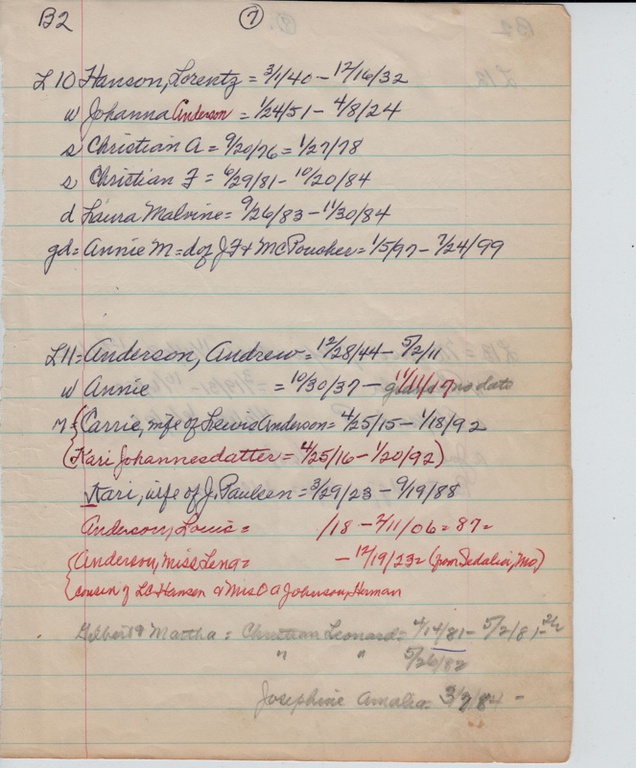 B2 7
L10 Hanson, Lorentz = 3/1/40 - 12/16/32
w Johanna Anderson = 1/24/51 - 4/8/24
s Christian A = 9/20/76 = 1/27/78
s Christian F = 6/29/81 - 10/20/84
d Laura Malvine = 9/26/83 - 11/30/84
gd = Annie M = d of J F + M C Poucher = 1/5/97 - 7/24/99
L11 = Anderson, Andrew = 12/28/44 - 5/2/11
w Annie = 10/30/37 - 11/11/17 no date
M { Carrie, wife of Lewis Anderson = 4/25/15 - 1/18/92
(Kari Johannesdatter = 4/25/16 - 1/20/92)
Kari, wife of J. Paulsen = 3/29/23 - 9/19/88
Anderson, Louis = /18 - 2/11/06 = 87 =
{ Anderson, Miss Lena = - 12/19/23 = (from Sedalia, Mo)
{ cousin of LC Hansen & Mrs O A Johnson, Herman
Gilbert & Martha = Christian Leonard = 4/14/81 - 5/2/81 -
" " 5/26/82
Josephine Amalia = 3/7/84 -